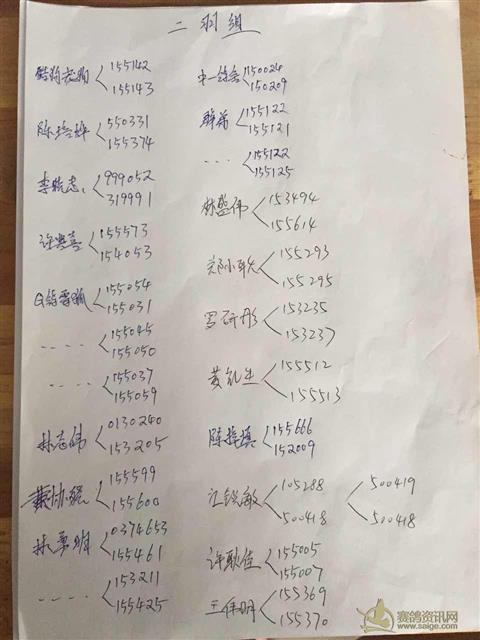 二羽组
155142
155143
陈培烨 550331
155374
李晓志 999052
319991
许兴喜 155573
154053
155054
155031
155045
155050
155037
155059
林志伟 0130240
153205
155599
155600
林勇明 0374653
155461
153211
155425
中一鸽舍 150024
150209
155122
155121
155122
155125
林盛伟 153494
155614
155293
155295
罗研彤 153235
153237
黄凯生 155512
155513
155666
152009
江锐敏 105288 500419
500418 500418
许耿佳 155005
155007
王伟明 155369
155370
赛鸽资讯网
www.saige.com